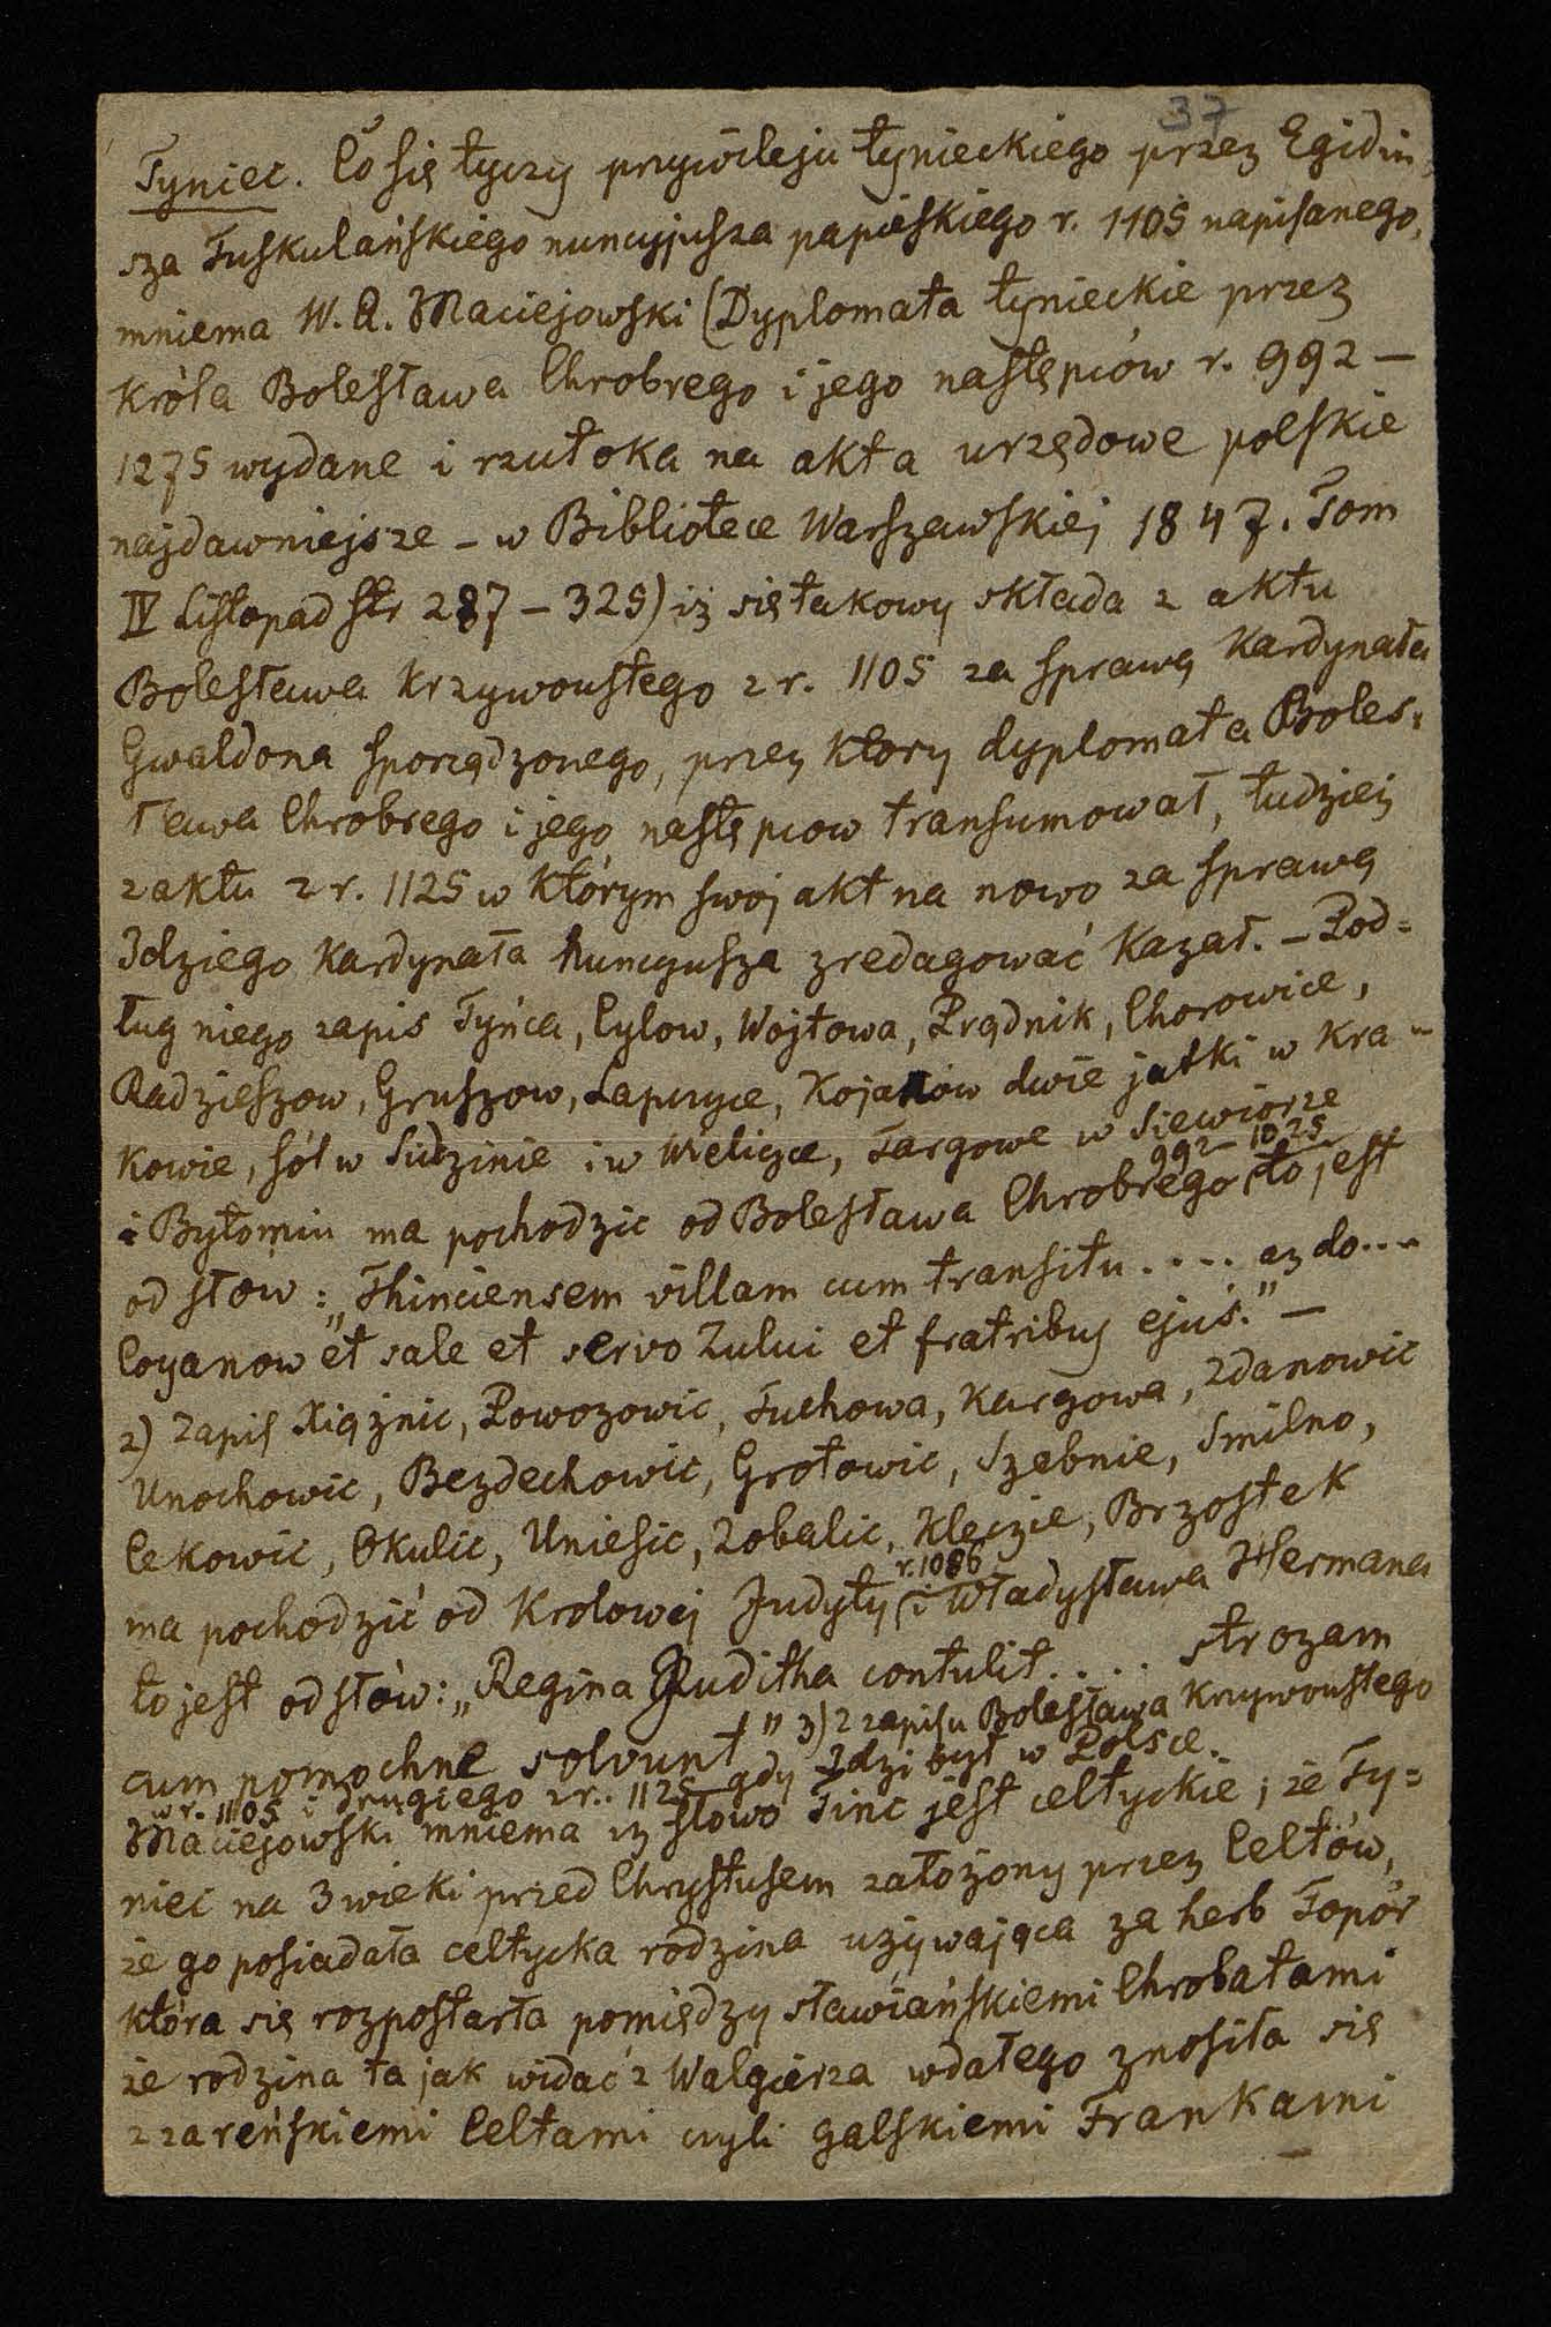 37
Tyniec. Co się tyczy przywileju tynieckiego przez Egidiu,
sza Tuskulańskiego nuncyjusza papieskiego r. 1105 napisanego,
mniema W. A. Maciejowski (Dyplomata tynieckie przez
króla Bolesława Chrobrego i jego następców r. 992 –
1275 wydane i rzut oka na akta urzędowe polskie
najdawniejsze – w Bibliotece Warszawskiej 1847. Tom
IV Listopad str 287 – 325) iż się takowy składa z aktu
Bolesława Krzywoustego z r. 1105 za sprawą Kardynała
Gwaldona sporządzonego, przez ktory dyplomata Boles:
ława Chrobrego i jego następcow transumował, tudzież
z aktu z r. 1125 w którym swoj akt na nowo za sprawą
Idziego Kardynała nuncyusza zredagować Kazał. – Pod=
ług niego zapis Tyńca, Cylow, Wojtowa, Prądnik, Chorowice,
Radzieszow, Gruszow, Łapczyce, Kojanów dwie jatki w Kra=
kowie, sól w Sidzinie i w Wieliczce, Targowe w Siewiorze
i Bytomiu ma pochodzic od Bolesława Chrobrego 992–1025 to jest
od słow: „Thinciensem villam cum transitu .... az do....
Coyanow et sale et servo Zului et fratribus ejus." –
2) Zapis Xiążnic, Powozowic, Tuchowa, Kargowa, Zdanowic
Unochowic, Bezdechowic, Grotowic, Szebnie, Smilno,
Cekowic, Okulic, Uniesic, Zobalic, Kleczie, Brzostek
ma pochodzić od Krolowej Judyty r. 1086 i Władysława Hermana
to jest od słów: „Regina Juditha contulit.... strozam
cum pomochne solvunt" 3) Z zapisu Bolesława Krzywoustego
w r. 1105 i drugiego z r. 1125 gdy Idzi był w Polsce.
Maciejowski mniema iz słowo Tinc jest celtyckie; że Ty=
niec na 3 wieki przed Chrystusem założony przez Celtów,
że go posiadała celtycka rodzina używająca za herb Topór
która się rozpostarła pomiędzy sławiańskiemi Chrobatami
że rodzina ta jak widać z Walgierza wdałego znosiła się
z zareńskiemi Celtami czyli galskiemi Frankami